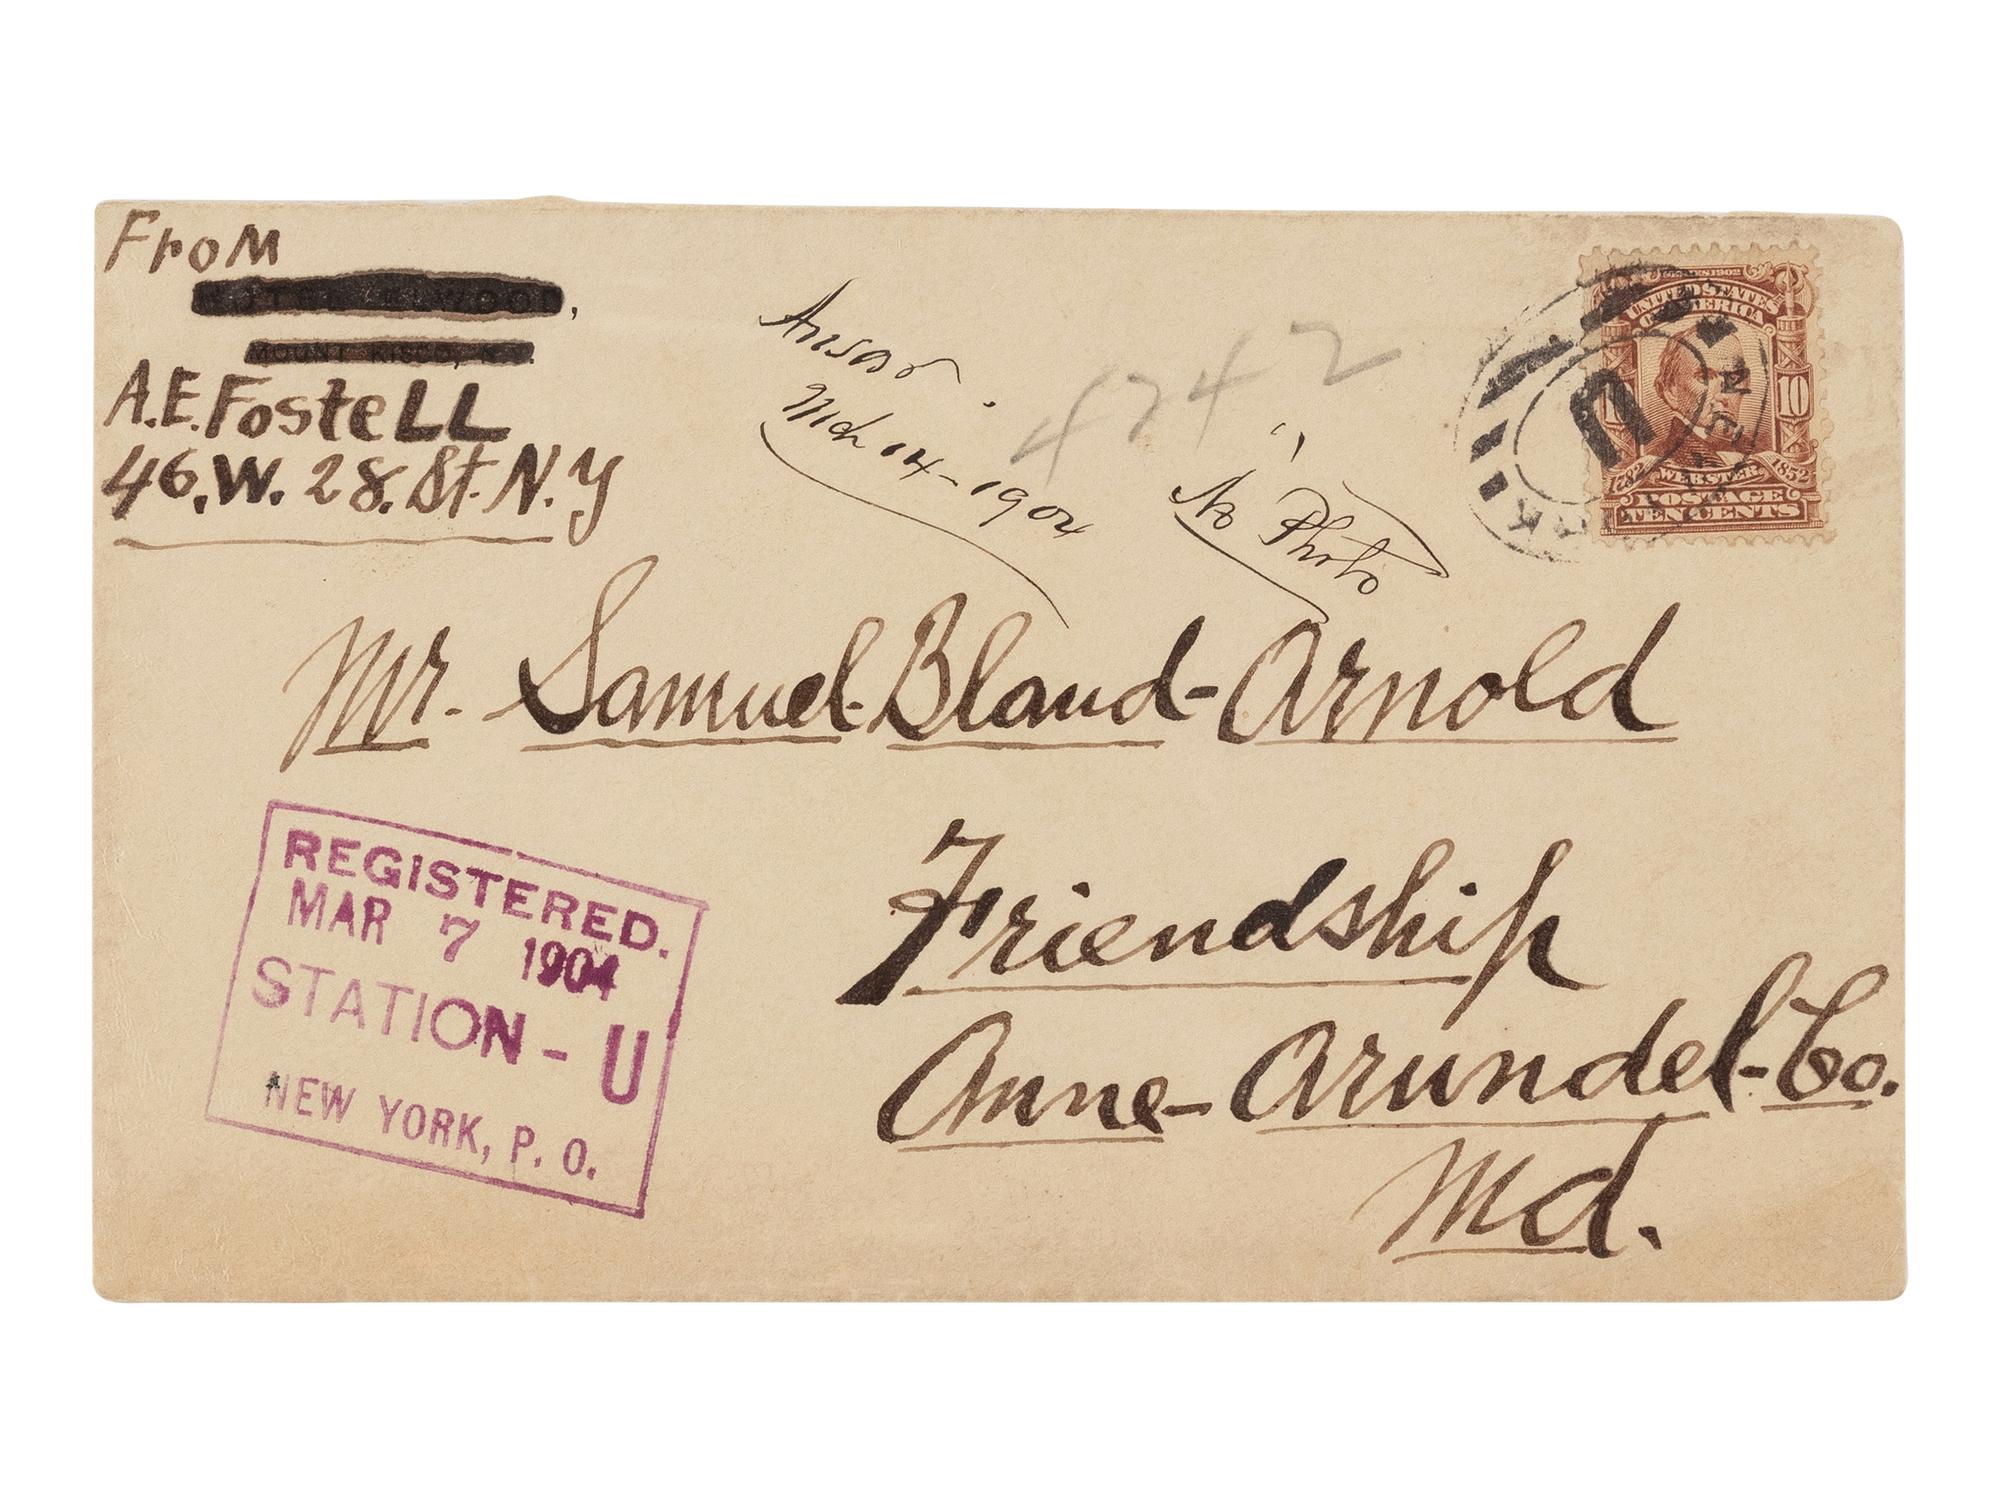 From
MOUNT KISCO, N.Y.
A.E. FosteLL
46. W. 28. St. N. Y
Ansd
Mch 14-1904
4742
No Photo
SERIES 1902
UNITED STATES
OF AMERICA
10
1782 WEBSTER 1852
POSTAGE
TEN CENTS
U
Mr. Samuel-Bland-Arnold
Friendship
Anne-Arundel-Co.
Md.
REGISTERED.
MAR 7 1904
STATION - U
NEW YORK, P. O.